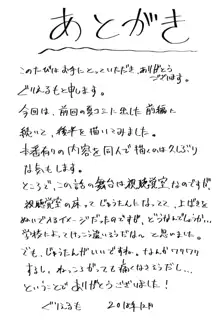 あとがき
このたびはお手にとっていただき、ありがとう
ございます。
ぐりえるもと申します。
今回は、前回の夏コミに出した前編に
続いて、後半を描いてみました。
本番有りの内容を同人で描くのは久しぶり
な気もします。
ところで、この話の舞台は視聴覚室なのですが、
視聴覚室の床ってじゅうたんになってて、上ばきを
ぬいで入るイメージだったのですが、どうなんでしょうか…
学校によってけっこう違いそうだな、と思いました。
でも、じゅうたんがいいですね。なんかワクワク
するし、ねっころがっても痛くなさそうだし…
ということでありがとうございました!
ぐりえるも